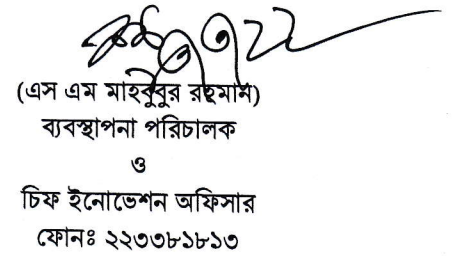 (এস এম মাহবুবুর রহমান)
ব্যবস্থাপনা পরিচালক
ও
চিফ ইনোভেশন অফিসার
ফোনঃ ২২৩৩৮১৮১৩